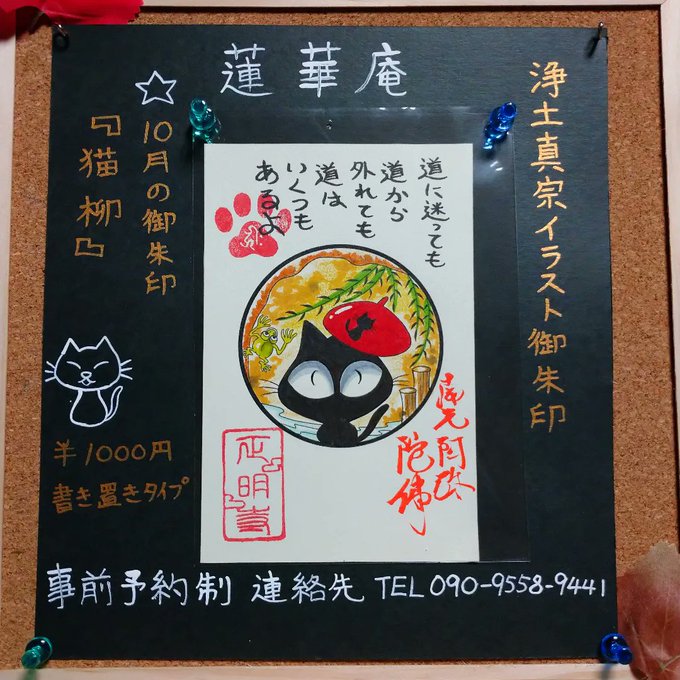 蓮華庵
浄土真宗イラスト御朱印
☆10月の御朱印
『猫柳』
道に迷っても
道から
外れても
道は
いくつも
あるよ
阿弥
陀佛
正明寺
¥1000円
書き置きタイプ
事前予約制 連絡先 TEL090-9558-9441